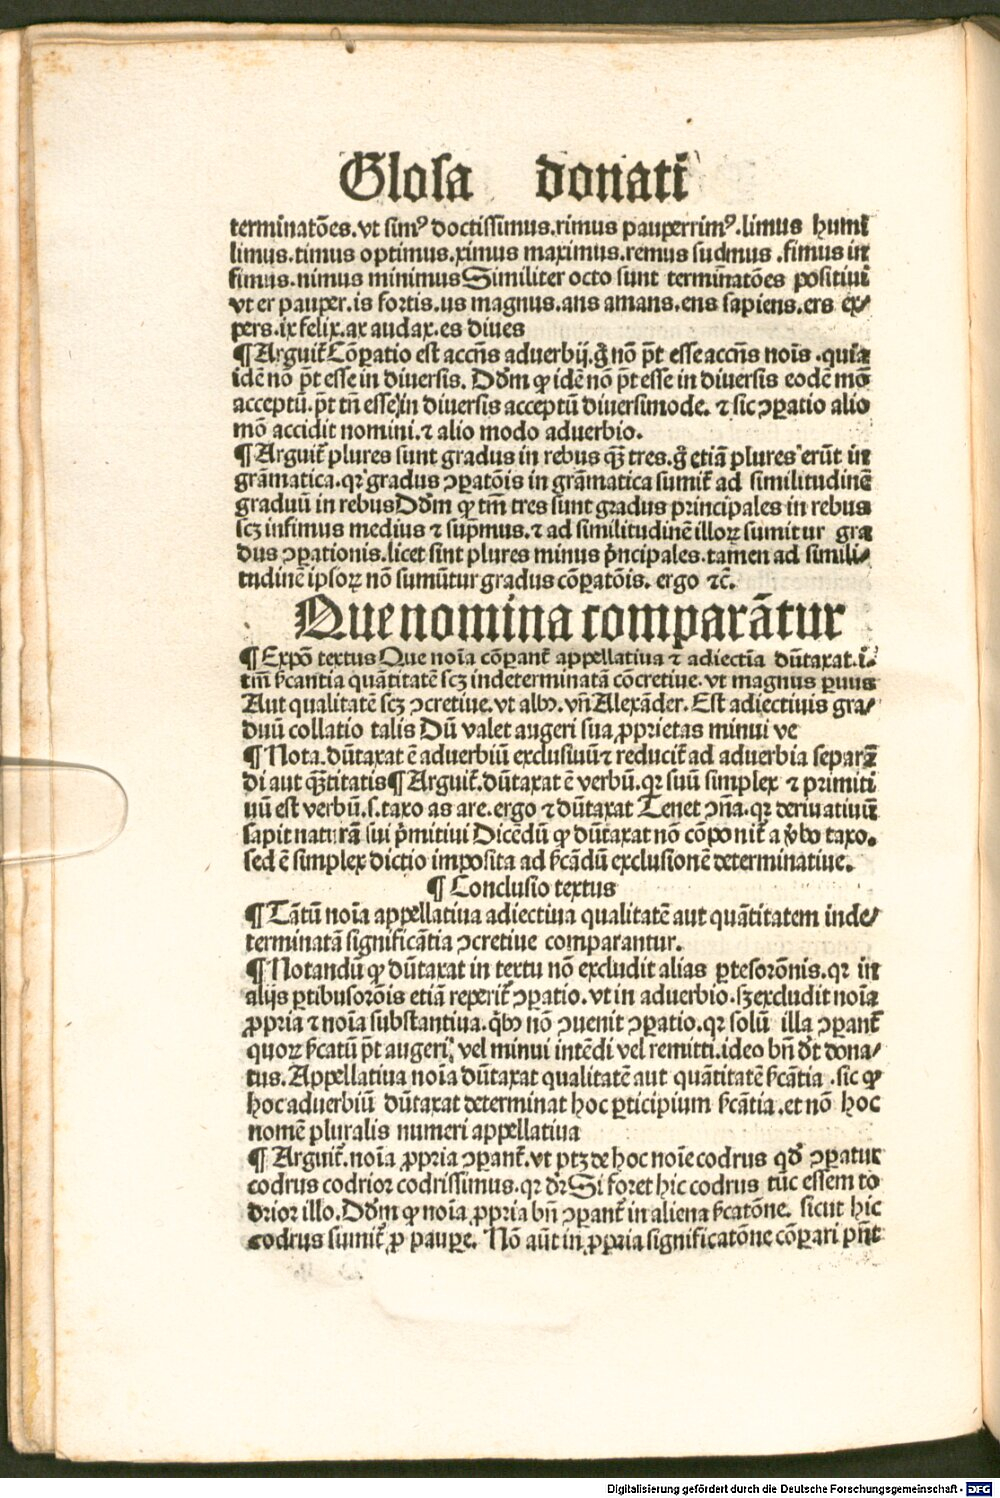 Glosa donati
terminatōes.vt simꝰ doctissimus.rimus pauperrimꝰ.limus humi
limus.timus optimus.ximus maximus.remus supmus .fimus in
fimus.nimus minimus Similiter octo sunt terminatōes positiui
vt er pauper.is fortis.us magnus.ans amans.ens sapiens.ers ex⸗
pers.ix felix.ax audax.es diues
¶ Arguit᷑ Cōꝑatio est accn̄s aduerbij.g̊ nō pt̄ esse accn̄s nois̄ .quia
idē nō pt̄ esse in diuersis. Dd̄m ꝙ idē nō pt̄ esse in diuersis eodē mō
acceptū.pt̄ tn̄ esse in diuersis acceptū diuersimode. ⁊ sic ꝯꝑatio alio
mō accidit nomini.⁊ alio modo aduerbio.
¶ Arguit᷑ plures sunt gradus in rebus qꝫ̄ tres.g̊ etiā plures erūt in
grāmatica.qꝛ gradus ꝯꝑatōis in grāmatica sumit᷑ ad similitudinē
graduū in rebus Dd̄m ꝙ tm̄ tres sunt gradus principales in rebus
scꝫ infimus medius ⁊ sup̄mus.⁊ ad similitudinē illoꝝ sumitur gra
dus ꝯꝑationis.licet sint plures minus p̄ncipales.tamen ad simili⸗
tudinē ipsoꝝ nō sumūtur gradus cōꝑatōis. ergo ⁊c̄.
Que nomina comparātur
¶ Expō textus Que noīa cōꝑant᷑ appellatiua ⁊ adiectīa dūtaxat.i.
tm̄ s̄cantia quātitatē scꝫ indeterminatā cōcretiue.vt magnus ꝑuus
Aut qualitatē scꝫ ꝯcretiue.vt albꝰ. vn̄ Alexāder. Est adiectiuis gra⸗
duū collatio talis Dū valet augeri sua ꝓprietas minui ve
¶ Nota.dūtaxat ē aduerbiū exclusiuū ⁊ reducit᷑ ad aduerbia separā
di aut qꝫ̄titatis ¶ Arguit᷑.dūtaxat ē verbū.qꝛ suū simplex ⁊ primiti
uū est verbū.s.taxo as are.ergo ⁊ dūtaxat Tenet ꝯn̄a.qꝛ deriuatiuū
sapit naturā sui p̄mitiui Dicēdū ꝙ dūtaxat nō cōponit᷑ a v̄bo taxo.
sed ē simplex dictio imposita ad s̄cādū exclusionē determinatiue.
¶ Conclusio textus
¶ Tātū noīa appellatiua adiectiua qualitatē aut quātitatem inde⸗
terminatā significātia ꝯcretiue comparantur.
¶ Notandū ꝙ dūtaxat in textu nō excludit alias ꝑtes orōnis.qꝛ in
alijs ꝑtibus orōis etiā reperit᷑ ꝯꝑatio.vt in aduerbio.sꝫ excludit noīa
ꝓpria ⁊ noīa substantiua.qͥbꝰ nō ꝯuenit ꝯꝑatio.qꝛ solū illa ꝯꝑant᷑
quoꝝ s̄catū pt̄ augeri, vel minui intēdi vel remitti.ideo bn̄ dt̄ dona⸗
tus. Appellatiua noīa dūtaxat qualitatē aut quātitatē s̄cātia .sic ꝙ
hoc aduerbiū dūtaxat determinat hoc ꝑticipium s̄cātia.et nō hoc
nomē pluralis numeri appellatiua
¶ Arguit᷑.noīa ꝓpria ꝯꝑant᷑.vt ptꝫ de hoc noīe codrus qd̄ ꝯꝑatur
codrus codrior codrissimus.qꝛ dr̄ Si foret hic codrus tūc essem co
drior illo. Dd̄m ꝙ noīa ꝓpria bn̄ ꝯꝑant᷑ in aliena s̄catōne. sicut hic
codrus sumit᷑ ꝓ pauꝑe. Nō aūt in ꝓpria significatōne cōꝑari pn̄t
Digitalisierung gefördert durch die Deutsche Forschungsgemeinschaft - DFG